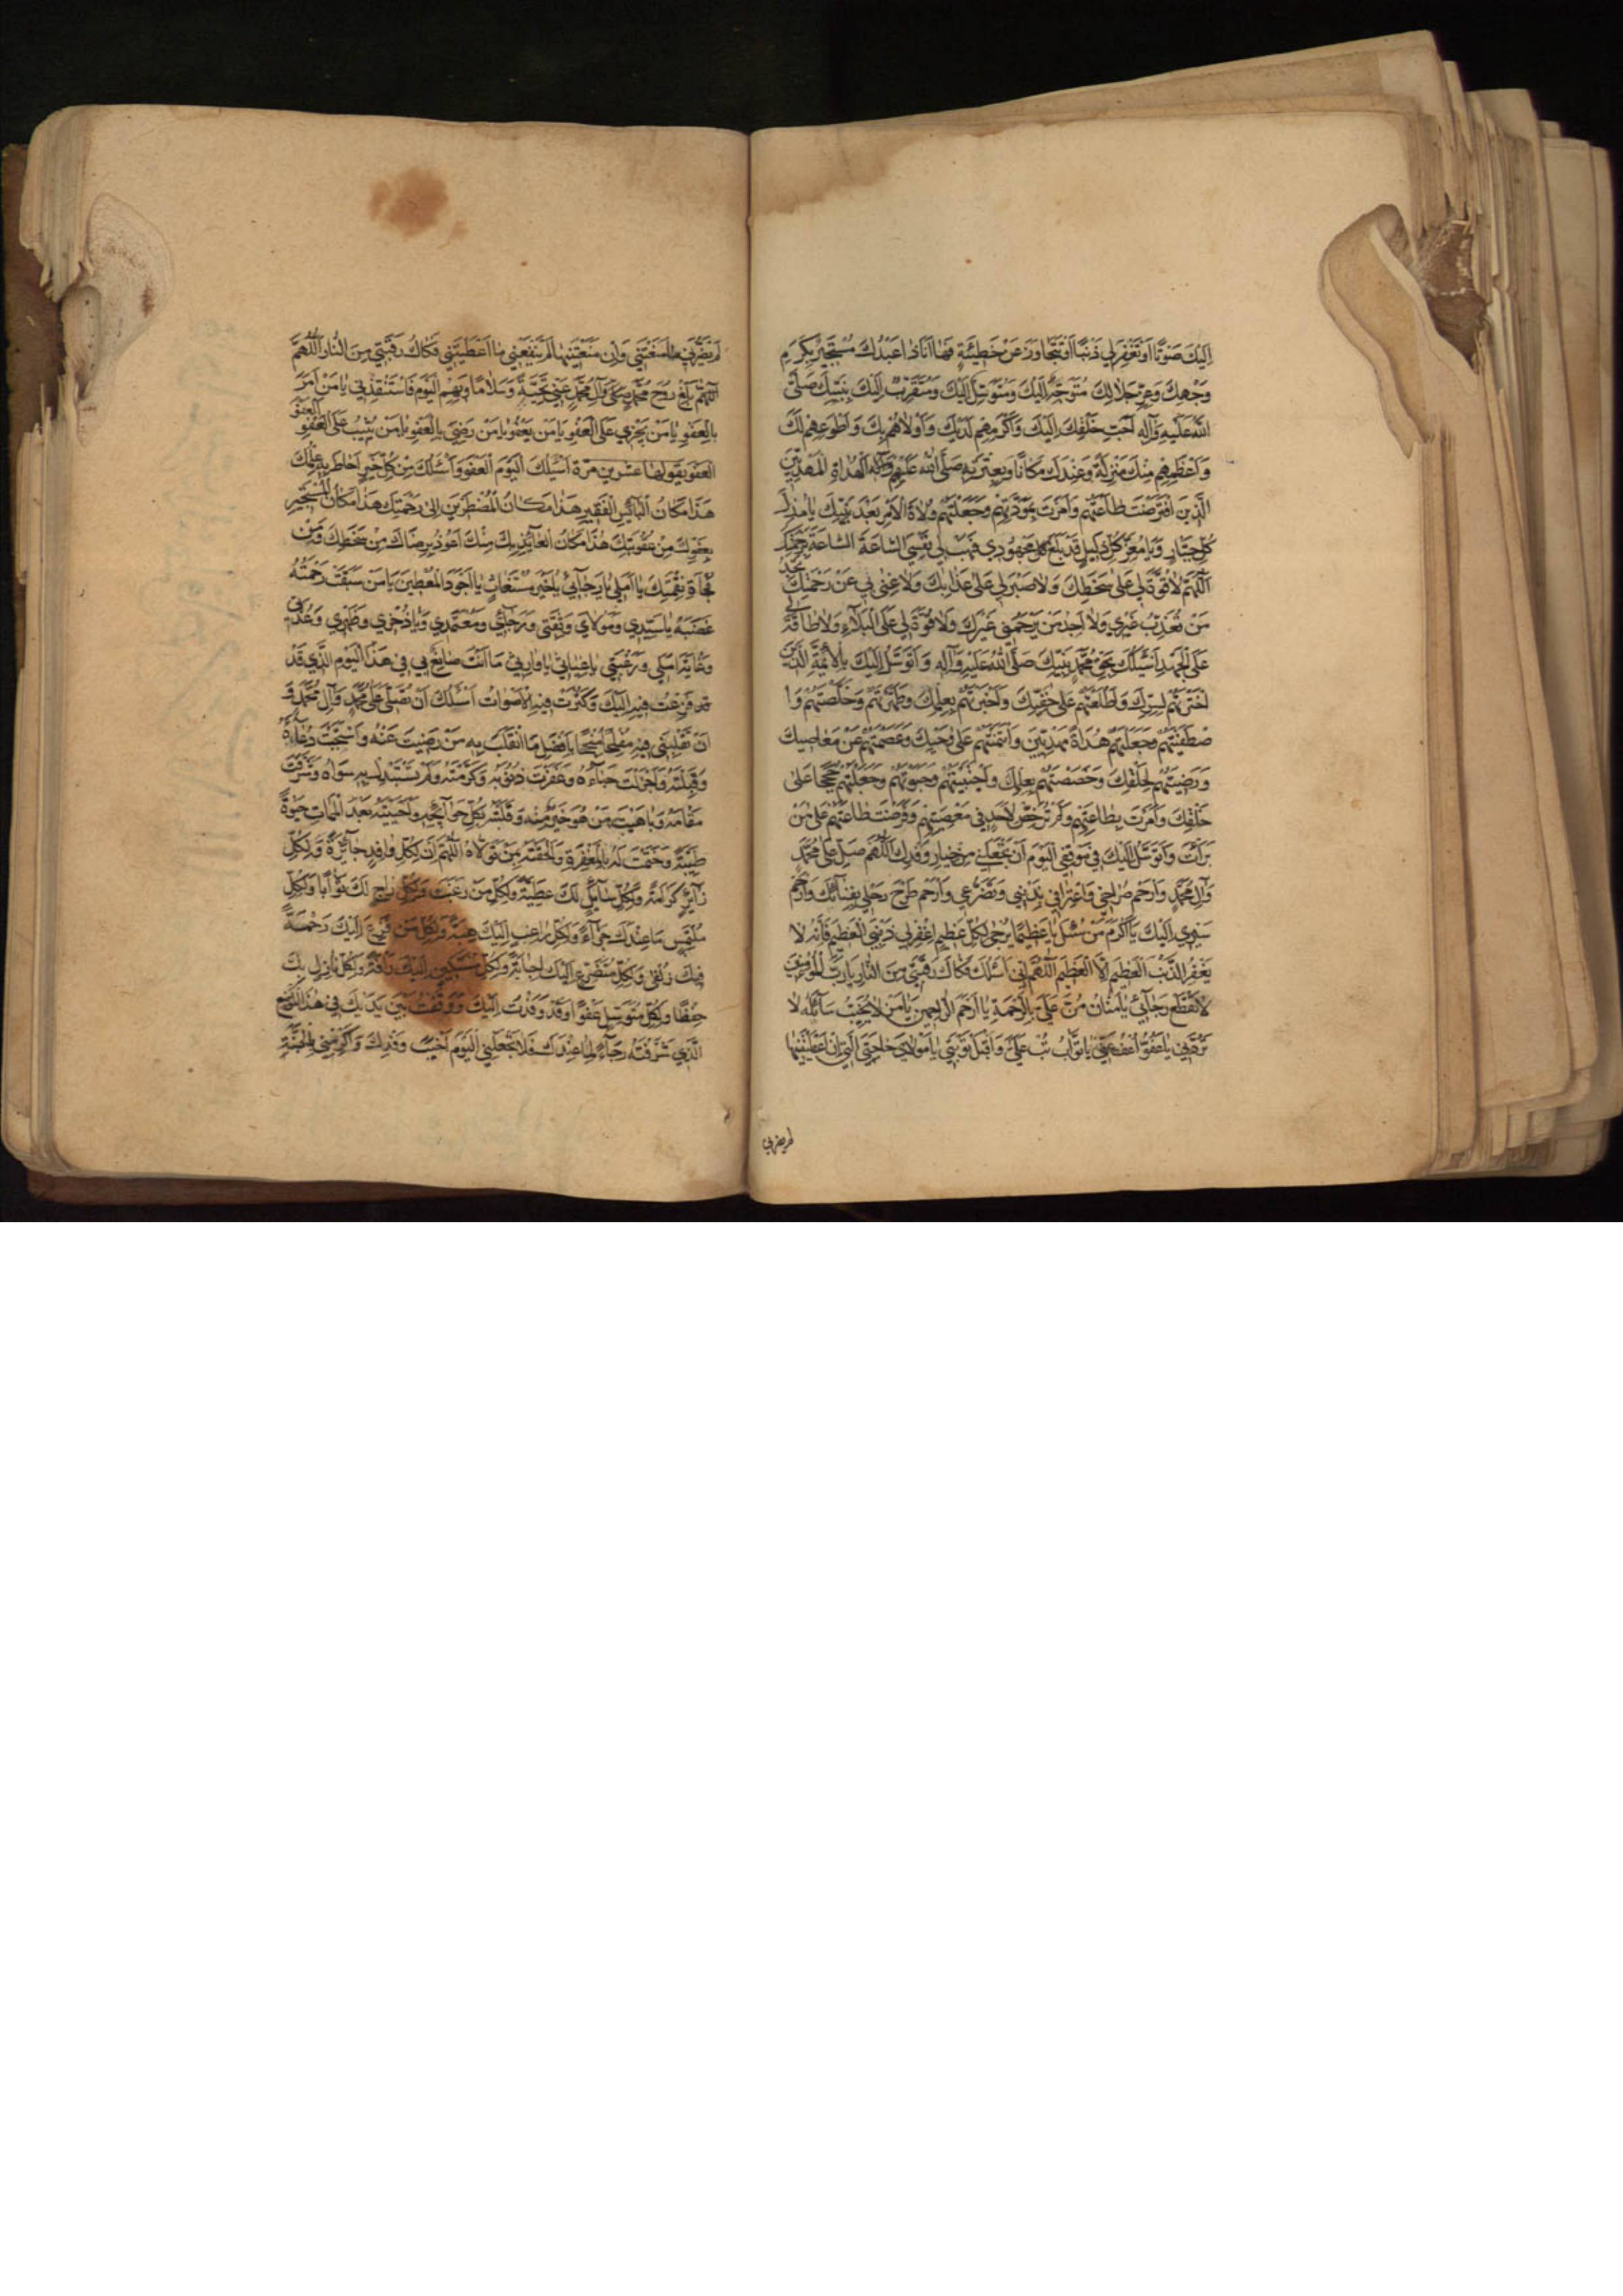 اِلَيْكَ صَوْتًا اَوْ تَغْفِرَ لِي ذَنْبًا اَوْ تَتَجَاوَزَ عَنْ خَطِيئَةٍ فَهَا اَنَا ذَا عَبْدُكَ مُسْتَجِيرٌ بِكَرَمِ
وَجْهِكَ وَعِزِّ جَلَالِكَ مُتَوَجِّهٌ اِلَيْكَ وَمُتَوَسِّلٌ اِلَيْكَ وَمُتَقَرِّبٌ اِلَيْكَ بِنَبِيِّكَ صَلَّى
اللهُ عَلَيْهِ وَآلِهِ اَحَبِّ خَلْقِكَ اِلَيْكَ وَاَكْرَمِهِمْ لَدَيْكَ وَاَوْلَاهُمْ بِكَ وَاَطْوَعِهِمْ لَكَ
وَاَعْظَمِهِمْ مِنْكَ مَنْزِلَةً وَعِنْدَكَ مَكَانًا وَبِعِتْرَتِهِ صَلَّى اللهُ عَلَيْهِمْ الْهُدَاةِ الْمَهْدِيِّينَ
الَّذِينَ افْتَرَضْتَ طَاعَتَهُمْ وَاَمَرْتَ بِمَوَدَّتِهِمْ وَجَعَلْتَهُمْ وُلَاةَ الْاَمْرِ بَعْدَ نَبِيِّكَ يَا مُذِلَّ
كُلِّ جَبَّارٍ وَيَا مُعِزَّ كُلِّ ذَلِيلٍ قَدْ بَلَغَ مَجْهُودِي فَهَبْ لِي نَفْسِي السَّاعَةَ السَّاعَةَ بِرَحْمَتِكَ
اَللّٰهُمَّ لَا قُوَّةَ لِي عَلَى سَخَطِكَ وَلَا صَبْرَ لِي عَلَى عَذَابِكَ وَلَا غِنَى لِي عَنْ رَحْمَتِكَ تَجِدُ
مَنْ تُعَذِّبُ غَيْرِي وَلَا اَجِدُ مَنْ يَرْحَمُنِي غَيْرَكَ وَلَا قُوَّةَ لِي عَلَى الْبَلَاءِ وَلَا طَاقَةَ لِي
عَلَى الْجَهْدِ اَسْئَلُكَ بِحَقِّ مُحَمَّدٍ نَبِيِّكَ صَلَّى اللهُ عَلَيْهِ وَآلِهِ وَاَتَوَسَّلُ اِلَيْكَ بِالْاَئِمَّةِ الَّذِينَ
اخْتَرْتَهُمْ لِسِرِّكَ وَاَطْلَعْتَهُمْ عَلَى خَفِيِّكَ وَاَخْبَرْتَهُمْ بِعِلْمِكَ وَطَهَّرْتَهُمْ وَخَلَّصْتَهُمْ وَا
صْطَفَيْتَهُمْ وَجَعَلْتَهُمْ هُدَاةً مَهْدِيِّينَ وَائْتَمَنْتَهُمْ عَلَى وَحْيِكَ وَعَصَمْتَهُمْ عَنْ مَعَاصِيكَ
وَرَضِيتَهُمْ لِخَلْقِكَ وَخَصَصْتَهُمْ بِعِلْمِكَ وَاجْتَبَيْتَهُمْ وَحَبَوْتَهُمْ وَجَعَلْتَهُمْ حُجَجًا عَلَى
خَلْقِكَ وَاَمَرْتَ بِطَاعَتِهِمْ وَلَمْ تُرَخِّصْ لِاَحَدٍ فِي مَعْصِيَتِهِمْ وَفَرَضْتَ طَاعَتَهُمْ عَلَى مَنْ
بَرَأْتَ وَاَتَوَسَّلُ اِلَيْكَ فِي مَوْقِفِي الْيَوْمَ اَنْ تَجْعَلَنِي مِنْ خِيَارِ وَفْدِكَ اللّٰهُمَّ صَلِّ عَلَى مُحَمَّدٍ
وَآلِ مُحَمَّدٍ وَارْحَمْ صُرَاخِي وَاعْتِرَافِي بِذَنْبِي وَتَضَرُّعِي وَارْحَمْ طَرْحَ رَحْلِي بِفِنَائِكَ وَارْحَمْ
مَسِيرِي اِلَيْكَ يَا اَكْرَمَ مَنْ سُئِلَ يَا عَظِيمًا يُرْجَى لِكُلِّ عَظِيمٍ اِغْفِرْ لِي ذَنْبِيَ الْعَظِيمَ فَاِنَّهُ لَا
يَغْفِرُ الذَّنْبَ الْعَظِيمَ اِلَّا الْعَظِيمُ اَللّٰهُمَّ اِنِّي اَسْئَلُكَ فَكَاكَ رَقَبَتِي مِنَ النَّارِ يَا رَبَّ الْمُؤْمِنِينَ
لَا تَقْطَعْ رَجَائِي يَا مَنَّانُ مُنَّ عَلَيَّ بِالرَّحْمَةِ يَا اَرْحَمَ الرَّاحِمِينَ يَا مَنْ لَا يُخَيِّبُ سَائِلَهُ لَا
تَرُدَّنِي يَا عَفُوُّ اعْفُ عَنِّي يَا تَوَّابُ تُبْ عَلَيَّ وَاقْبَلْ تَوْبَتِي يَا مَوْلَايَ حَاجَتِيَ الَّتِي اِنْ اَعْطَيْتَنِيهَا
لم يضرني
لَمْ يَضُرَّنِي مَا مَنَعْتَنِي وَاِنْ مَنَعْتَنِيهَا لَمْ يَنْفَعْنِي مَا اَعْطَيْتَنِي فَكَاكَ رَقَبَتِي مِنَ النَّارِ اَللّٰهُمَّ
اَللّٰهُمَّ بَلِّغْ رُوحَ مُحَمَّدٍ وَآلِ مُحَمَّدٍ عَنِّي تَحِيَّةً وَسَلَامًا وَبِهِمُ الْيَوْمَ فَاسْتَنْقِذْنِي يَا مَنْ اَمَرَ
بِالْعَفْوِ يَا مَنْ يَجْزِي عَلَى الْعَفْوِ يَا مَنْ يَعْفُو يَا مَنْ رَضِيَ بِالْعَفْوِ يَا مَنْ يُثِيبُ عَلَى الْعَفْوِ الْعَفْوَ
الْعَفْوَ يَقُولُهَا عِشْرِينَ مَرَّةً اَسْئَلُكَ الْيَوْمَ الْعَفْوَ وَاَسْئَلُكَ مِنْ كُلِّ خَيْرٍ اَحَاطَ بِهِ عِلْمُكَ
هَذَا مَكَانُ الْبَائِسِ الْفَقِيرِ هَذَا مَكَانُ الْمُضْطَرِّ اِلَى رَحْمَتِكَ هَذَا مَكَانُ الْمُسْتَجِيرِ
بِعَفْوِكَ مِنْ عُقُوبَتِكَ هَذَا مَكَانُ الْعَائِذِ بِكَ مِنْكَ اَعُوذُ بِرِضَاكَ مِنْ سَخَطِكَ وَمِنْ
فُجَاءَةِ نِقْمَتِكَ يَا اَمَلِي يَا رَجَائِي يَا خَيْرَ مُسْتَغَاثٍ يَا اَجْوَدَ الْمُعْطِينَ يَا مَنْ سَبَقَتْ رَحْمَتُهُ
غَضَبَهُ يَا سَيِّدِي وَمَوْلَايَ وَثِقَتِي وَرَجَائِي وَمُعْتَمَدِي وَيَا ذُخْرِي وَظَهْرِي وَعُدَّتِي
وَغَايَةَ اَمَلِي وَرَغْبَتِي يَا غِيَاثِي يَا وَارِثِي مَا اَنْتَ صَانِعٌ بِي فِي هَذَا الْيَوْمِ الَّذِي قَدْ
فَزِعْتُ فِيهِ اِلَيْكَ وَكَثُرَتْ فِيهِ الْاَصْوَاتُ اَسْئَلُكَ اَنْ تُصَلِّيَ عَلَى مُحَمَّدٍ وَآلِ مُحَمَّدٍ وَ
اَنْ تَقْلِبَنِي فِيهِ مُفْلِحًا مُنْجِحًا بِاَفْضَلِ مَا انْقَلَبَ بِهِ مَنْ رَضِيتَ عَنْهُ وَاسْتَجَبْتَ دُعَاءَهُ
وَقَبِلْتَهُ وَاَجْزَلْتَ حِبَاءَهُ وَغَفَرْتَ ذُنُوبَهُ وَكَرَّمْتَهُ وَلَمْ تَسْتَبْدِلْ بِهِ سِوَاهُ وَشَرَّفْتَ
مَقَامَهُ وَبَاهَيْتَ مَنْ هُوَ خَيْرٌ مِنْهُ وَقَلَبْتَهُ بِكُلِّ حَوَائِجِهِ وَاَحْيَيْتَهُ بَعْدَ الْمَمَاتِ حَيٰوةً
طَيِّبَةً وَخَتَمْتَ لَهُ بِالْمَغْفِرَةِ وَاَلْحَقْتَهُ بِمَنْ تَوَلَّاهُ اَللّٰهُمَّ اِنَّ لِكُلِّ وَافِدٍ جَائِزَةً وَلِكُلِّ
زَائِرٍ كَرَامَةً وَلِكُلِّ سَائِلٍ لَكَ عَطِيَّةً وَلِكُلِّ رَاجٍ لَكَ ثَوَابًا وَلِكُلِّ
مُلْتَمِسٍ مَا عِنْدَكَ جَزَاءً وَلِكُلِّ رَاغِبٍ اِلَيْكَ هِبَةً وَلِكُلِّ مَنْ فَزِعَ اِلَيْكَ رَحْمَةً
فِيكَ زُلْفَى وَلِكُلِّ مُتَضَرِّعٍ اِلَيْكَ اِجَابَةً وَلِكُلِّ مُسْتَكِينٍ اِلَيْكَ رَأْفَةً وَلِكُلِّ نَازِلٍ بِكَ
حِفْظًا وَلِكُلِّ مُتَوَسِّلٍ عَفْوًا وَقَدْ وَفَدْتُ اِلَيْكَ وَوَقَفْتُ بَيْنَ يَدَيْكَ فِي هَذَا الْمَوْضِعِ
الَّذِي شَرَّفْتَهُ رَجَاءً لِمَا عِنْدَكَ فَلَا تَجْعَلْنِي الْيَوْمَ اَخْيَبَ وَفْدِكَ وَاَكْرِمْنِي بِالْجَنَّةِ